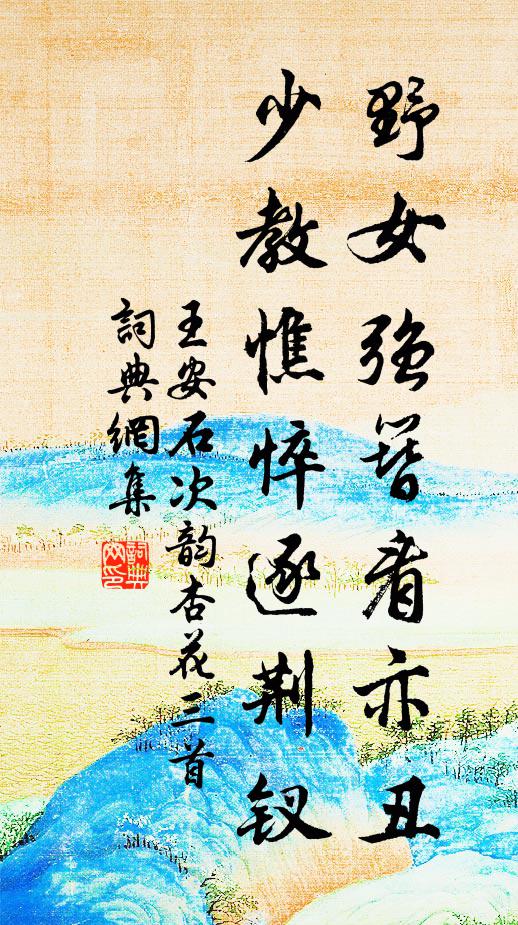 野女強簪看亦丑
少教憔悴逐荆釵
王安石次韵杏花三首
詞典網集
詞典网印